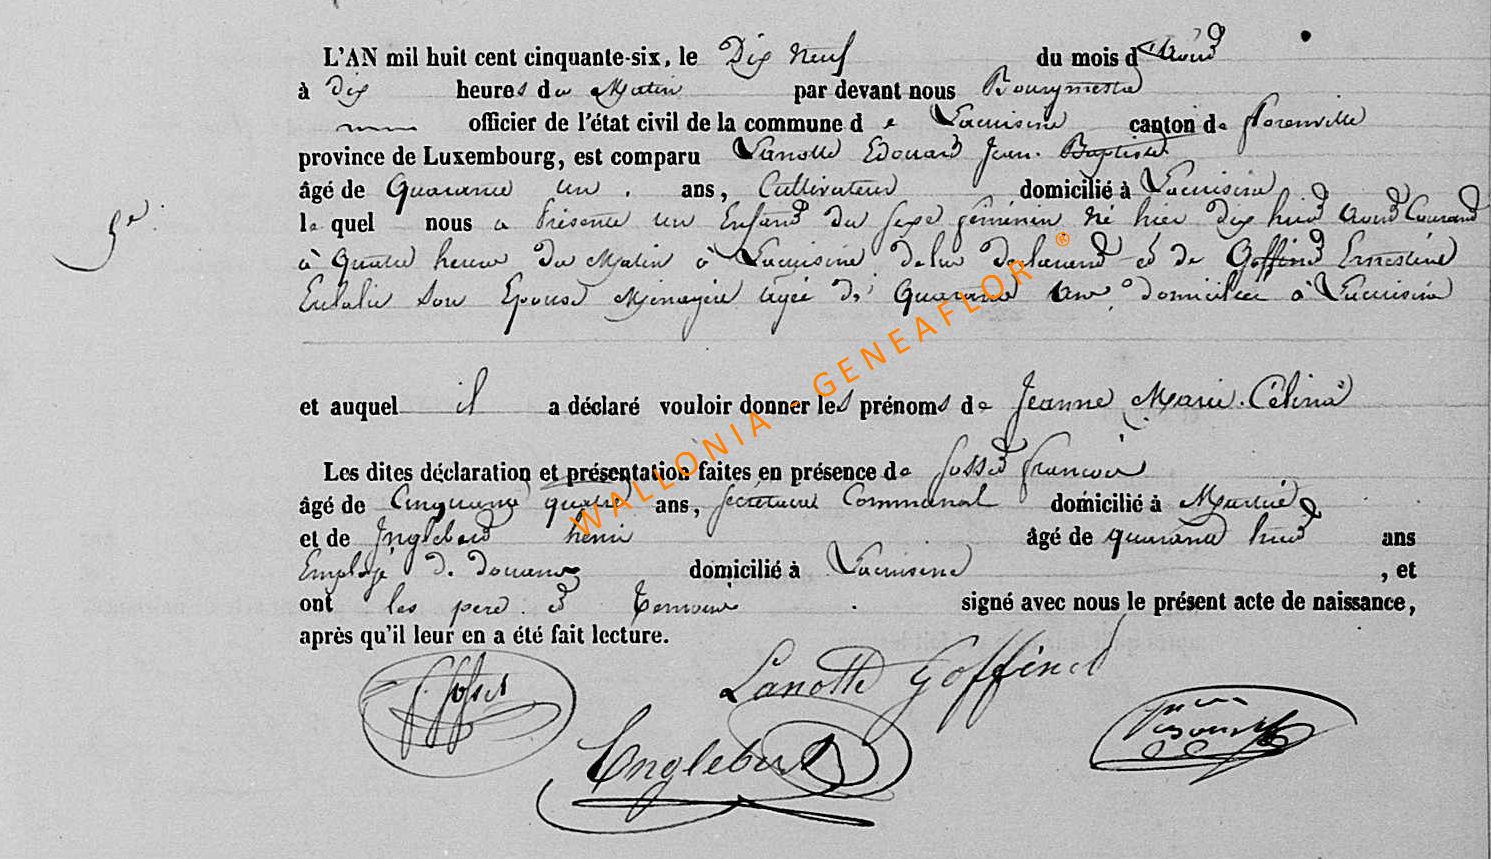 L'AN mil huit cent cinquante-six, le Dix neuf du mois d'Août
à dix heures du Matin par devant nous Bourgmestre
officier de l'état civil de la commune de Lacuisine canton de florenville
province de Luxembourg, est comparu Lanotte Edouard Jean Baptiste
âgé de Quarante un ans, Cultivateur domicilié à Lacuisine
lequel nous a Présenté un Enfant du sexe féminin né hier dix huit Août Courant
à Quatre heure du Matin à Lacuisine de lui déclarant et de Goffinet Ernestine
Eulalie Son Epouse Ménagère agée de Quarante ans domiciliée à Lacuisine
et auquel il a déclaré vouloir donner les prénoms de Jeanne Marie Célina
Les dites déclaration et présentation faites en présence de Josset françois
âgé de Cinquante quatre ans, Secrétaire Communal domicilié à
et de Inglebert henri âgé de quarante huit ans
Employé de douanes domicilié à Lacuisine, et
ont les père et témoins signé avec nous le présent acte de naissance,
après qu'il leur en a été fait lecture.
Lanotte Goffinet
Inglebert
WALLONIA - GENEAFLOR ®